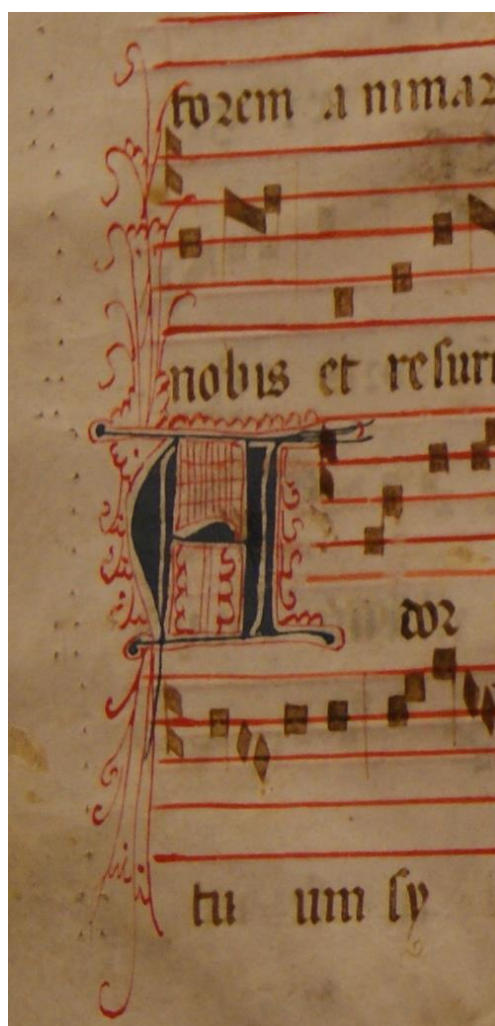 torem animar
nobis et resuri
A dor
tu um sy